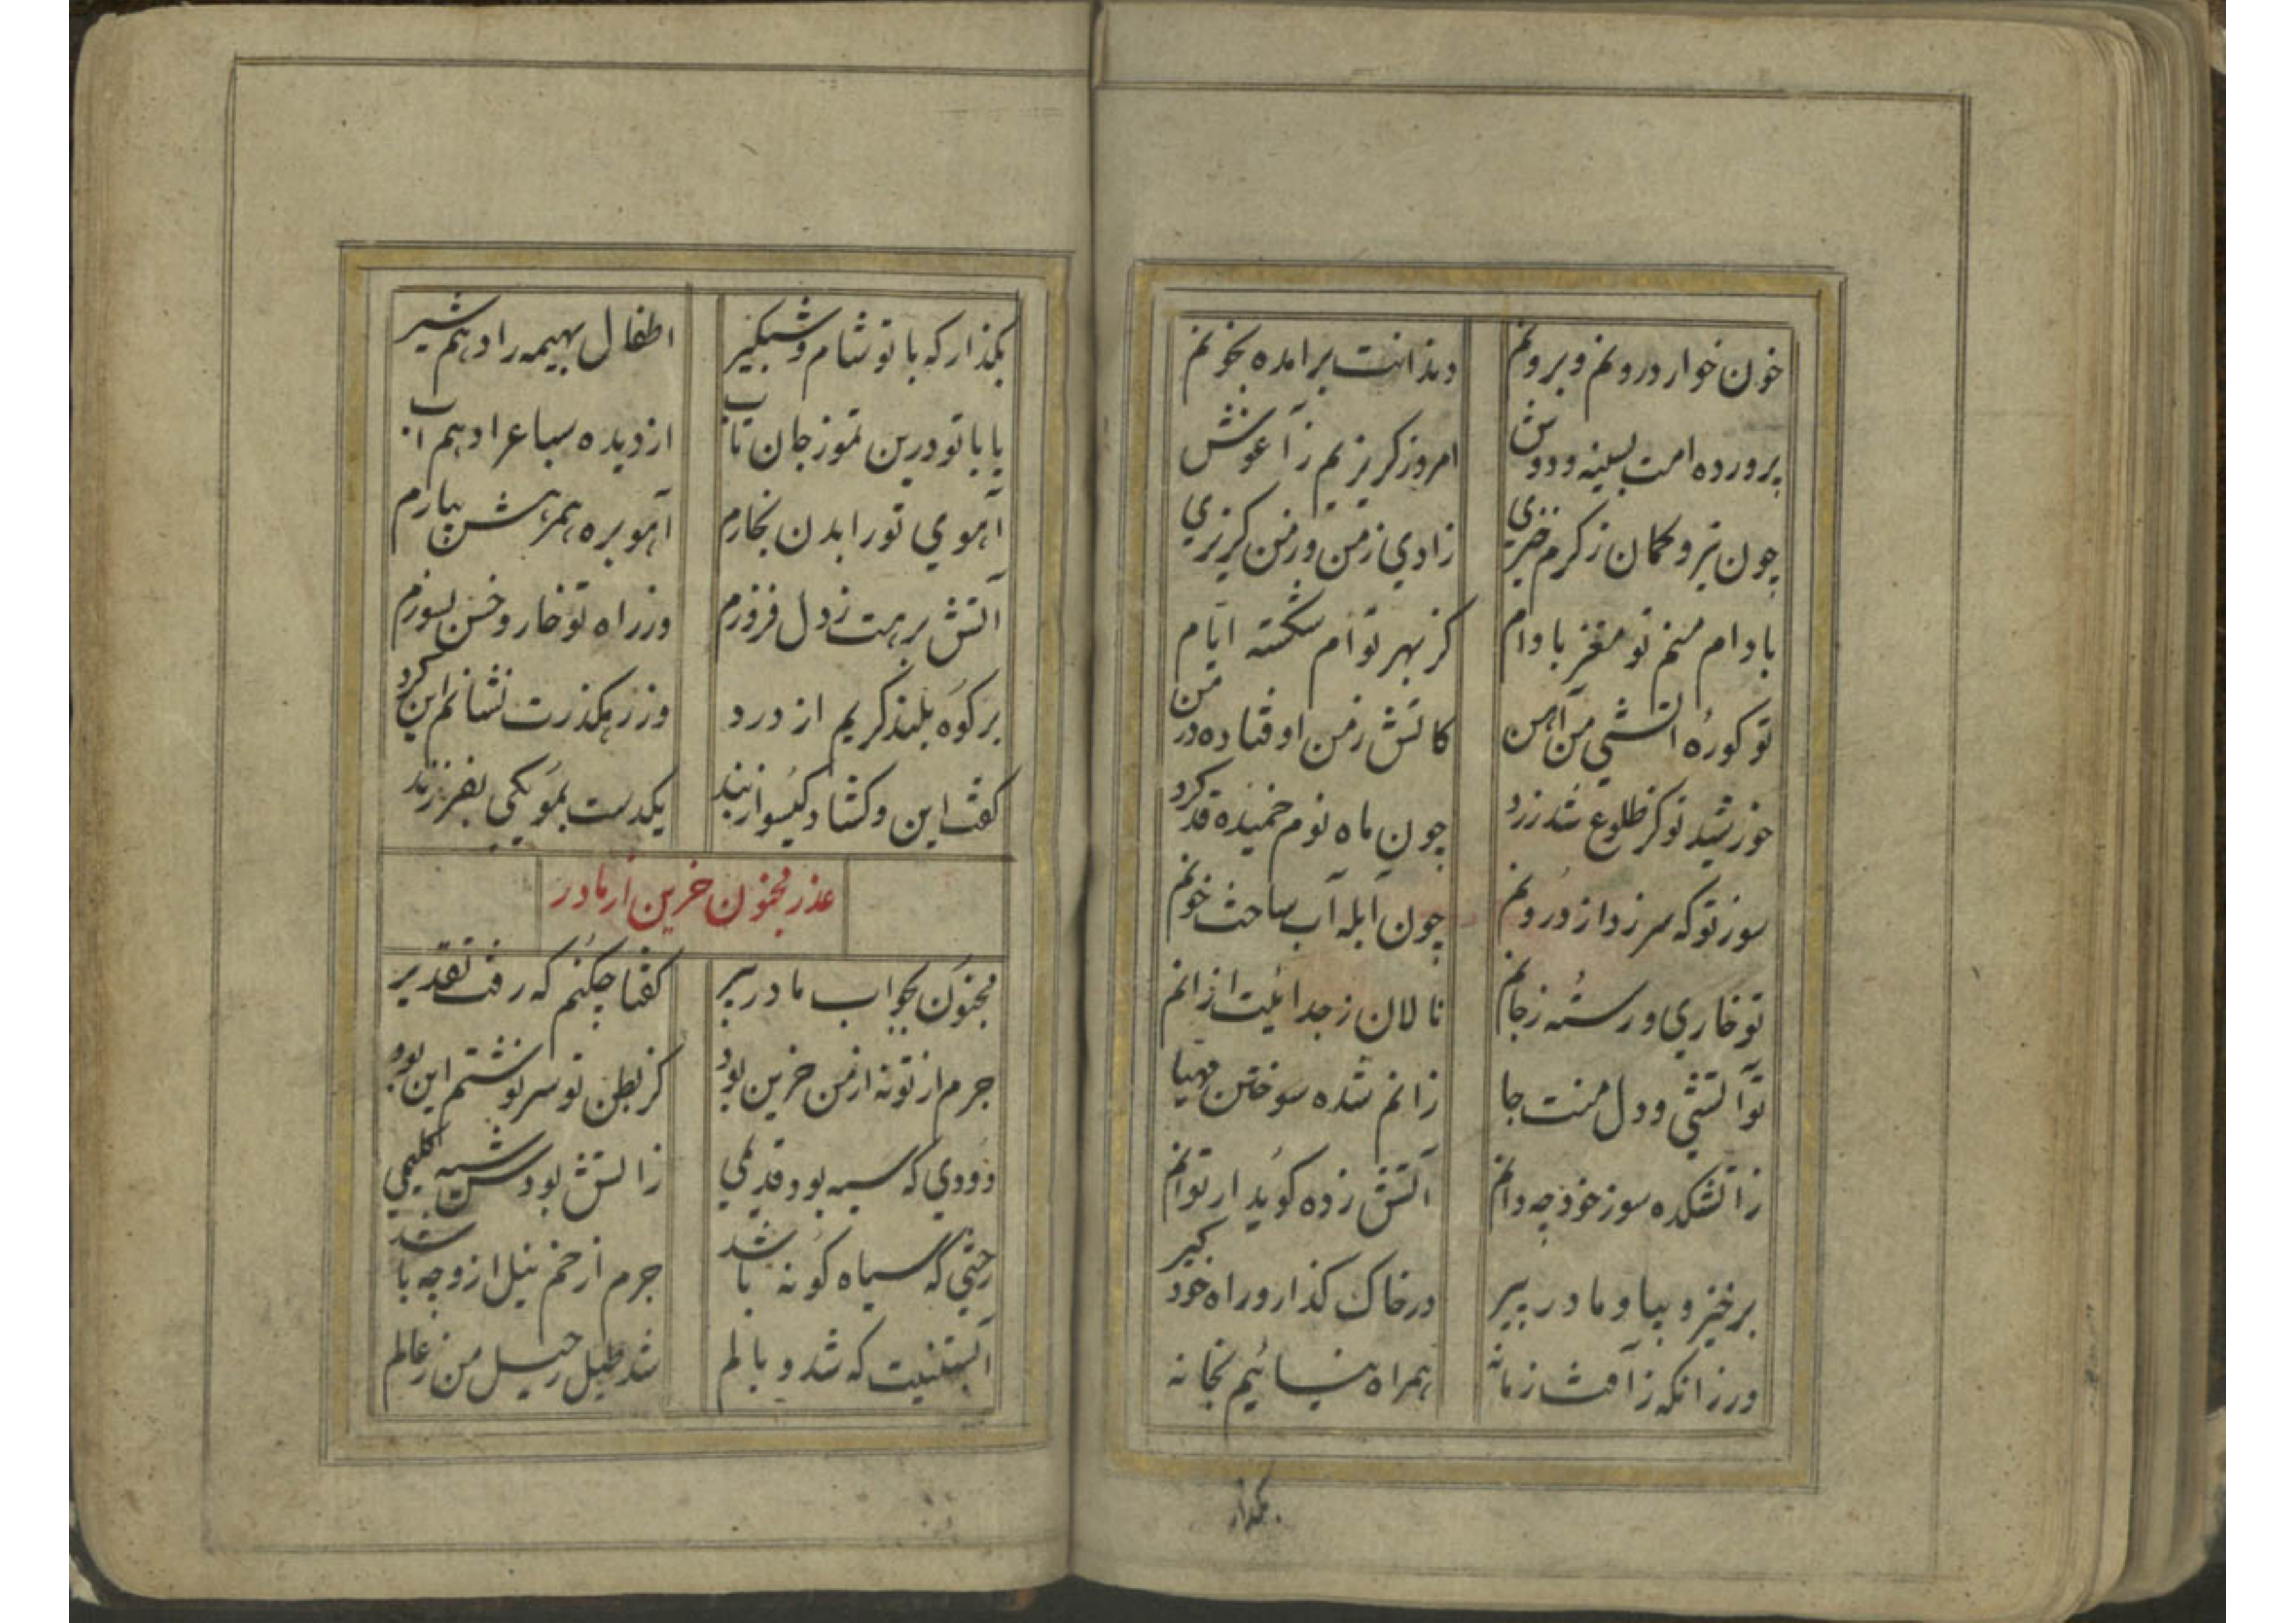 خون خوار درونم و برونم دندانت برامده بخونم
پرورده امت بسینه و دوش امروز گریزیم ز آغوش
چون تیر و کمان ز گرم خیزی زادی ز من و ز من گریزی
بادام منم تو مغز بادام کز بهر توام شکسته ایام
تو کوره آتشی من آهن کاتش ز من اوفتاده در من
خورشید تو کز طلوع شد زرد چون ماه نوم خمیده قد کرد
سوز تو که سر زد از درونم چون آبله آب ساخت خونم
تو خاری و رسته ز جانم نالان ز جدائیت ازانم
تو آتشی و دل منت جا زانم شده سوختن مهیا
ز اتشکده سوز خود چه دانم آتش زده گوید ار توانم
برخیز و بیا و مادر پیر در خاک گذار و راه خود گیر
ورزانکه ز آفت زمانه همراه نیائیم بخانه
بگذار
بگذار که با تو شام و شبگیر اطفال بهیمه را دهم شیر
یا با تو درین تموز جان تاب از دیده سباع را دهم آب
آهوی تو را بدن بخارم آهو بره همرهش بیارم
آتش برهت ز دل فروزم وز راه تو خار و خس بسوزم
بر کوه بلند گریم از درد وز رهگذرت نشانم این گرد
گفت این و گشاد گیسو از بند یکدست بمو یکی بفرزند
عذر مجنون حزین از مادر
مجنون بجواب مادر پیر گفتا چکنم که رفت تقدیر
جرم از تو نه از من حزین بود کز بطن تو سرنوشتم این بود
دودی که سیه بود قدیمی ز آتش بودش سیه گلیمی
رختی که سیاه گونه باشد جرم از خم نیل ازو چه باشد
آبستنیت که شد وبالم شد طبل رحیل من ز عالم